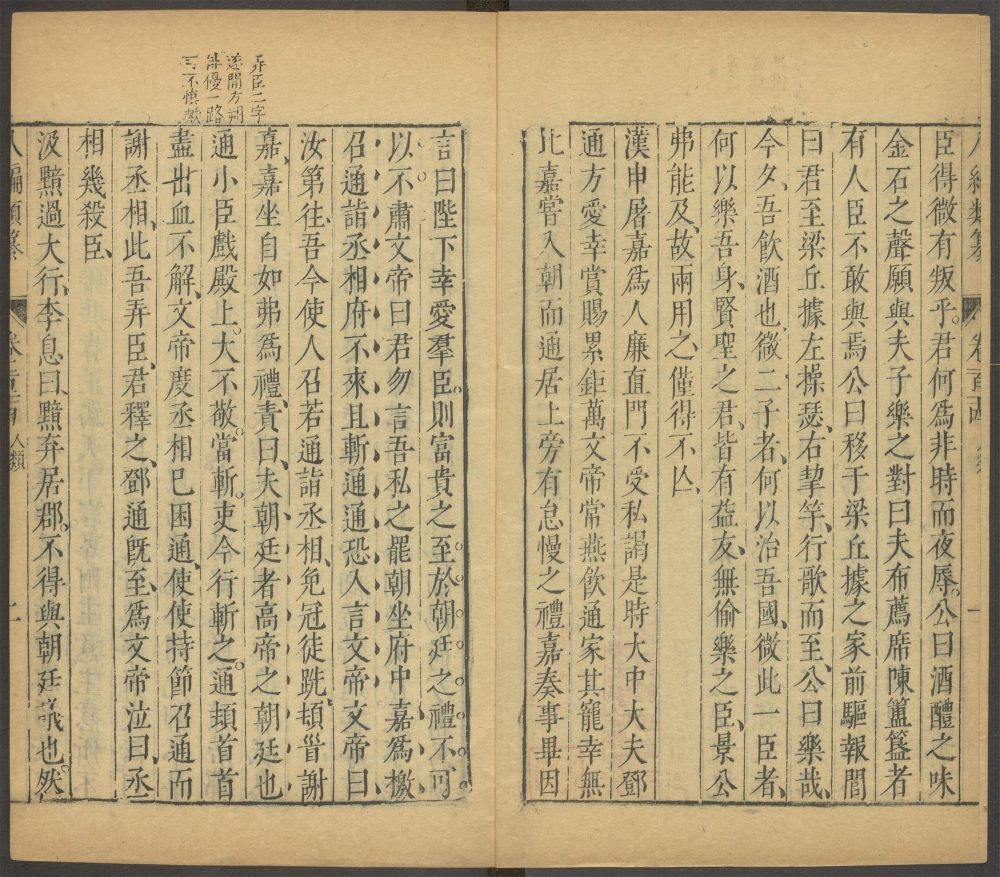 八編類纂 卷百
臣得微有叛乎。君何爲非時而夜辱。公曰酒醴之味
金石之聲願與夫子樂之對曰夫布薦席陳簠簋者
有人臣不敢與焉公曰移于梁丘據之家前驅報閭
曰君至梁丘據左操瑟、右挈竽、行歌而至、公曰樂哉、
今夕、吾飲酒也、微二子者、何以治吾國、微此一臣者、
何以樂吾身、賢聖之君、皆有益友、無偷樂之臣、景公
弗能及、故兩用之、僅得不亾、
漢申屠嘉爲人廉直門不受私謁是時大中大夫鄧
通方愛幸賞賜累鉅萬文帝常燕飲通家其寵幸無
比嘉嘗入朝而通居上旁有怠慢之禮嘉奏事畢因
弄臣二字
遂開方朔
俳優一路
可不慎歟
言曰陛下幸愛羣臣。則富貴之至於朝廷之禮不可
以不肅文帝曰君勿言吾私之罷朝坐府中嘉爲檄
召通詣丞相府不來且斬通通恐入言文帝文帝曰
汝第往、吾今使人召若通詣丞相、免冠徒跣、頓首謝
嘉、嘉坐自如弗爲禮、責曰、夫朝廷者高帝之朝廷也
通小臣戲殿上、大不敬、當斬。吏今行斬之。通頓首首
盡出血不解、文帝度丞相已困通、使使持節召通而
謝丞相、此吾弄臣、君釋之、鄧通既至爲文帝泣曰、丞
相幾殺臣、
汲黯過大行、李息曰、黯弃居郡。不得與朝廷議也。然
八編類纂 卷 百 人類